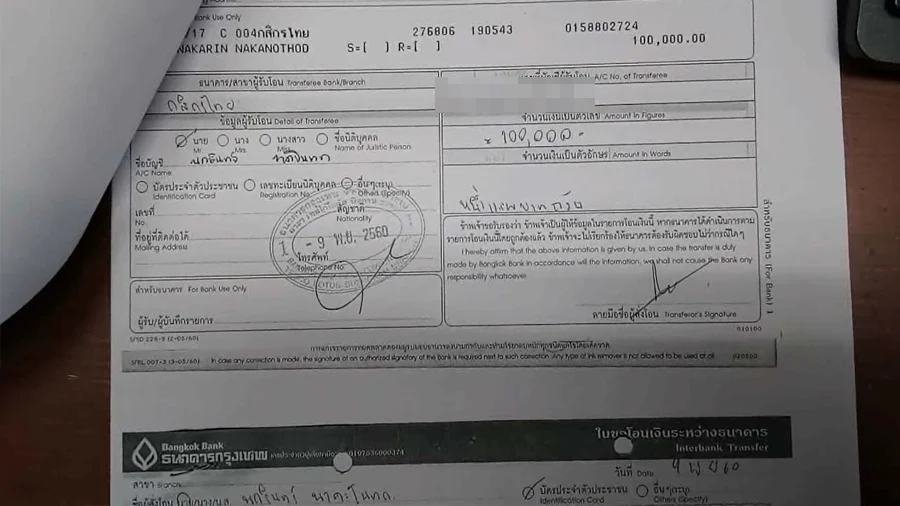 Bank Use Only
/17 C 004กสิกรไทย 276806 190543 0158802724
NAKARIN NAKANOTHOD S=[ ] R=[ ] 100,000.00
ธนาคาร/สาขาผู้รับโอน Transferee Bank/Branch
A/C No. of Transferee
กสิกรไทย
ข้อมูลผู้รับโอน Detail of Transferee
จำนวนเงินเป็นตัวเลข Amount in Figures
นาย นาง นางสาว ชื่อนิติบุคคล
Mr. Mrs. Miss Name of Juristic Person
100,000.-
ชื่อบัญชี
A/C Name
จำนวนเงินเป็นตัวอักษร Amount in Words
บัตรประจำตัวประชาชน เลขทะเบียนนิติบุคคล อื่นๆระบุ
Identification Card Registration No. Others (Specify)
หนึ่งแสนบาทถ้วน
เลขที่
No.
สัญชาติ
Nationality
ที่อยู่ที่ติดต่อได้
Mailing Address
- 9 2560
โทรศัพท์
Telephone No.
ข้าพเจ้าขอรับรองว่า ข้าพเจ้าเป็นผู้ให้ข้อมูลในรายการโอนเงินนี้ หากธนาคารได้ดำเนินการตาม
รายการโอนเงินนี้โดยถูกต้องแล้ว ข้าพเจ้าจะไม่เรียกร้องให้ธนาคารต้องรับผิดชอบไม่ว่ากรณีใดๆ
I hereby affirm that the above information is given by us. In case the transfer is duly
made by Bangkok Bank in accordance will the information, we shall not cause the Bank any
reponsibility whatsoever.
สำหรับธนาคาร For Bank Use Only
ผู้รับ/ผู้บันทึกรายการ
ลายมือชื่อผู้สั่งโอน Transferor's Signature
สำหรับธนาคาร (For Bank) 1
010100
In case any correction is made, the signature of an authorized signatory of the Bank is required next to such correction. Any type of ink remover is not allowed to be used at all.
020500
Bangkok Bank
ธนาคารกรุงเทพ
ใบขอโอนเงินระหว่างธนาคาร
Interbank Transfer
วันที่ Date
สาขา Branch
บัตรประจำตัวประชาชน อื่นๆระบุ
Identification Card Others (Specify)